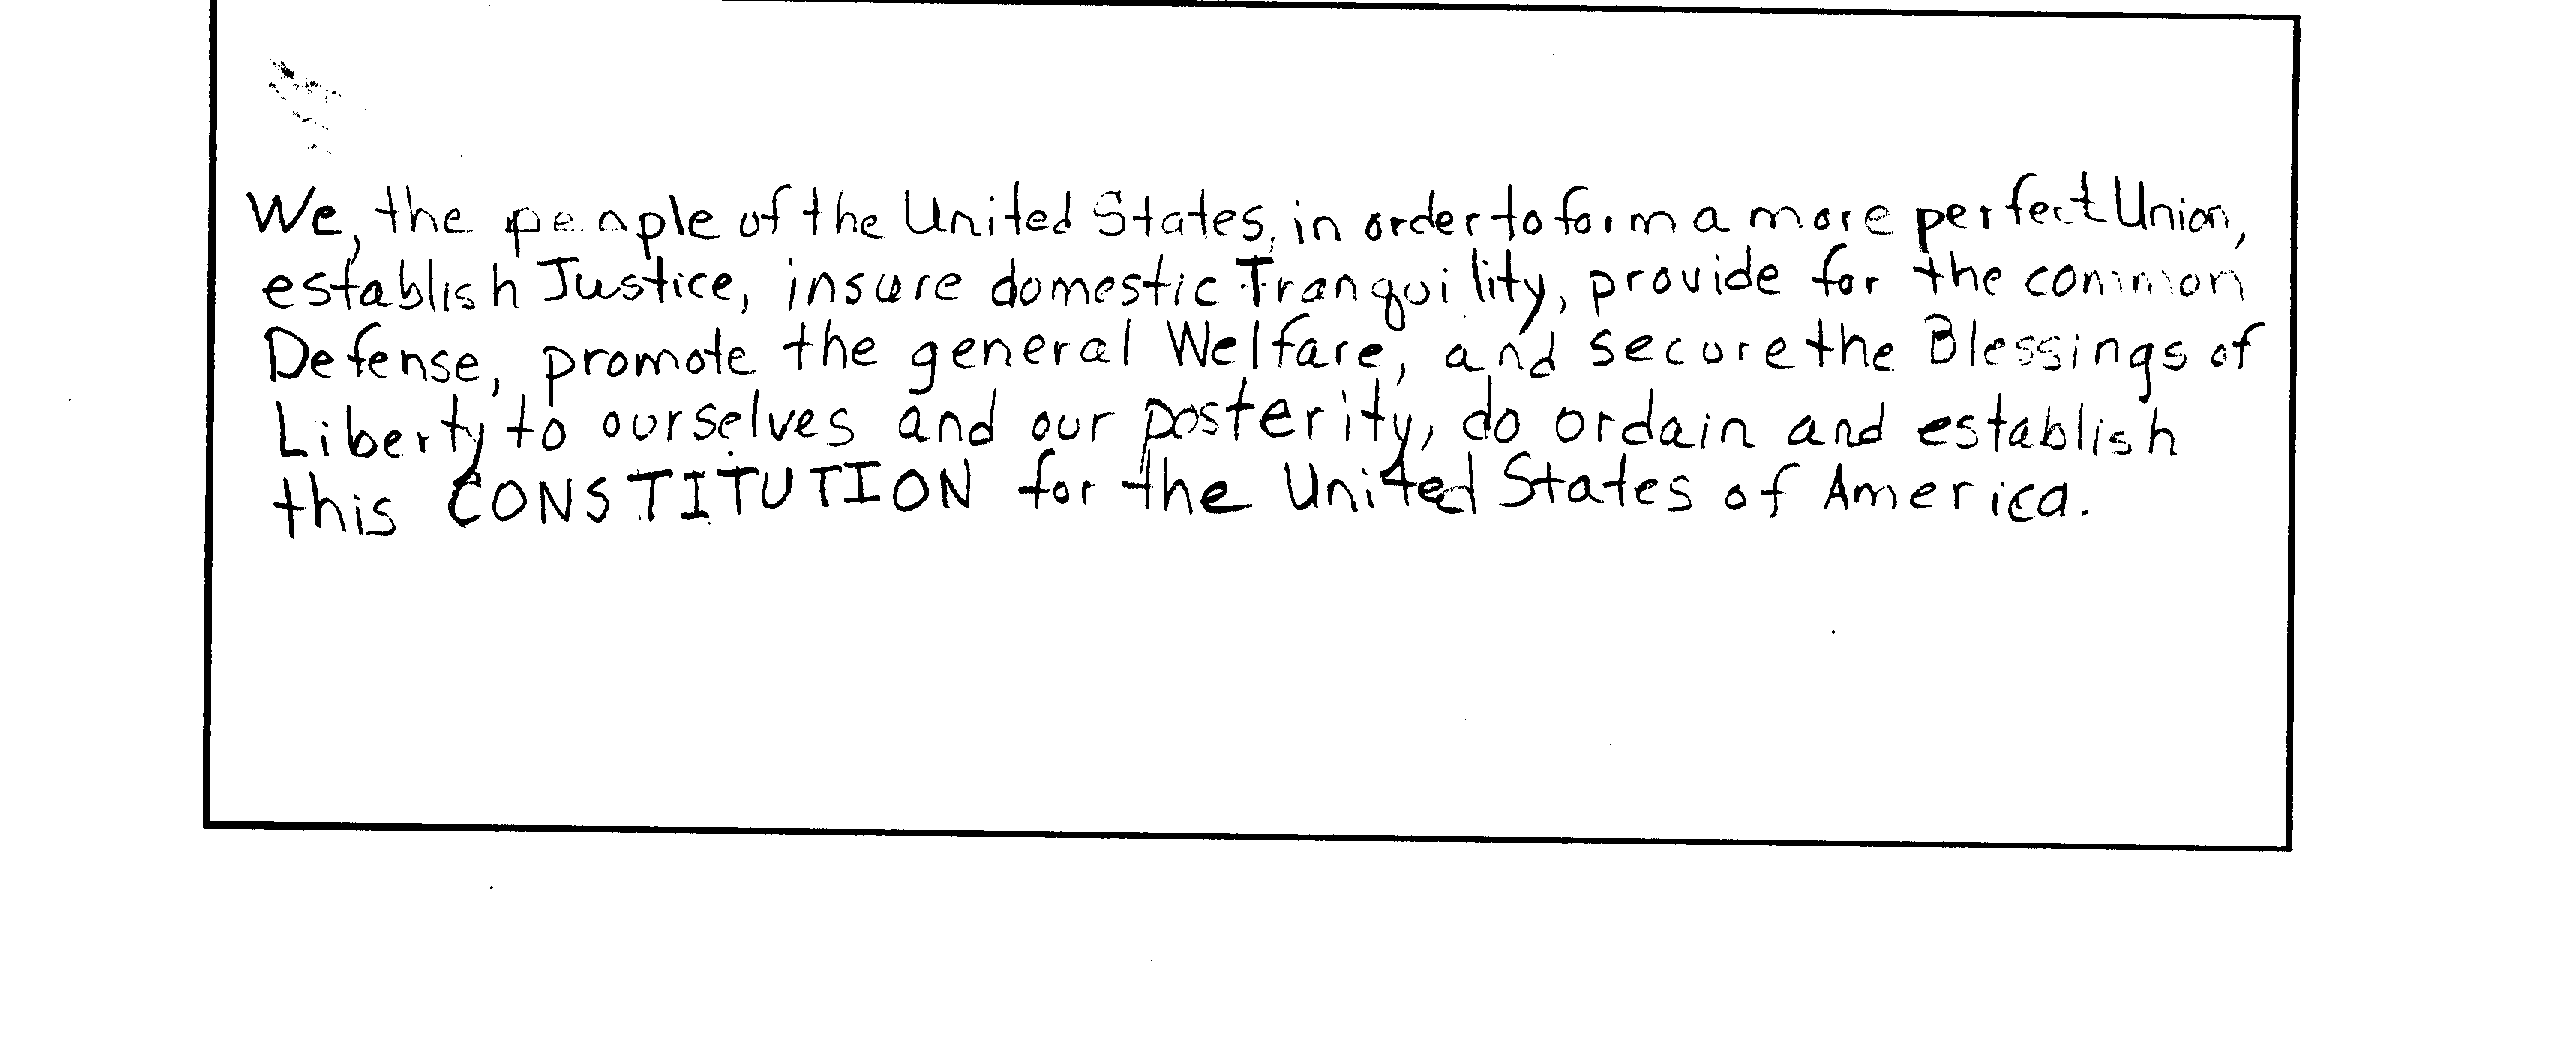 We, the people of the United States, in order to form a more perfect Union,
establish Justice, insure domestic Tranquility, provide for the common
Defense, promote the general Welfare, and secure the Blessings of
Liberty to ourselves and our posterity, do ordain and establish
this CONSTITUTION for the United States of America.